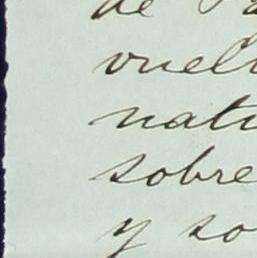 de Pa
vuelt
natu
sobre
y so